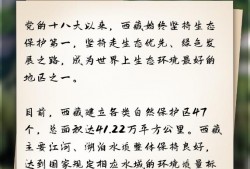 党的十八大以来，西藏始终坚持生态
保护第一，坚持走生态优先、绿色发
展之路，成为世界上生态环境最好的
地区之一。
目前，西藏建立各类自然保护区47
个，总面积达41.22万平方公里。西藏
主要江河、湖泊水质整体保持良好，
达到国家规定相应水域的环境质量标